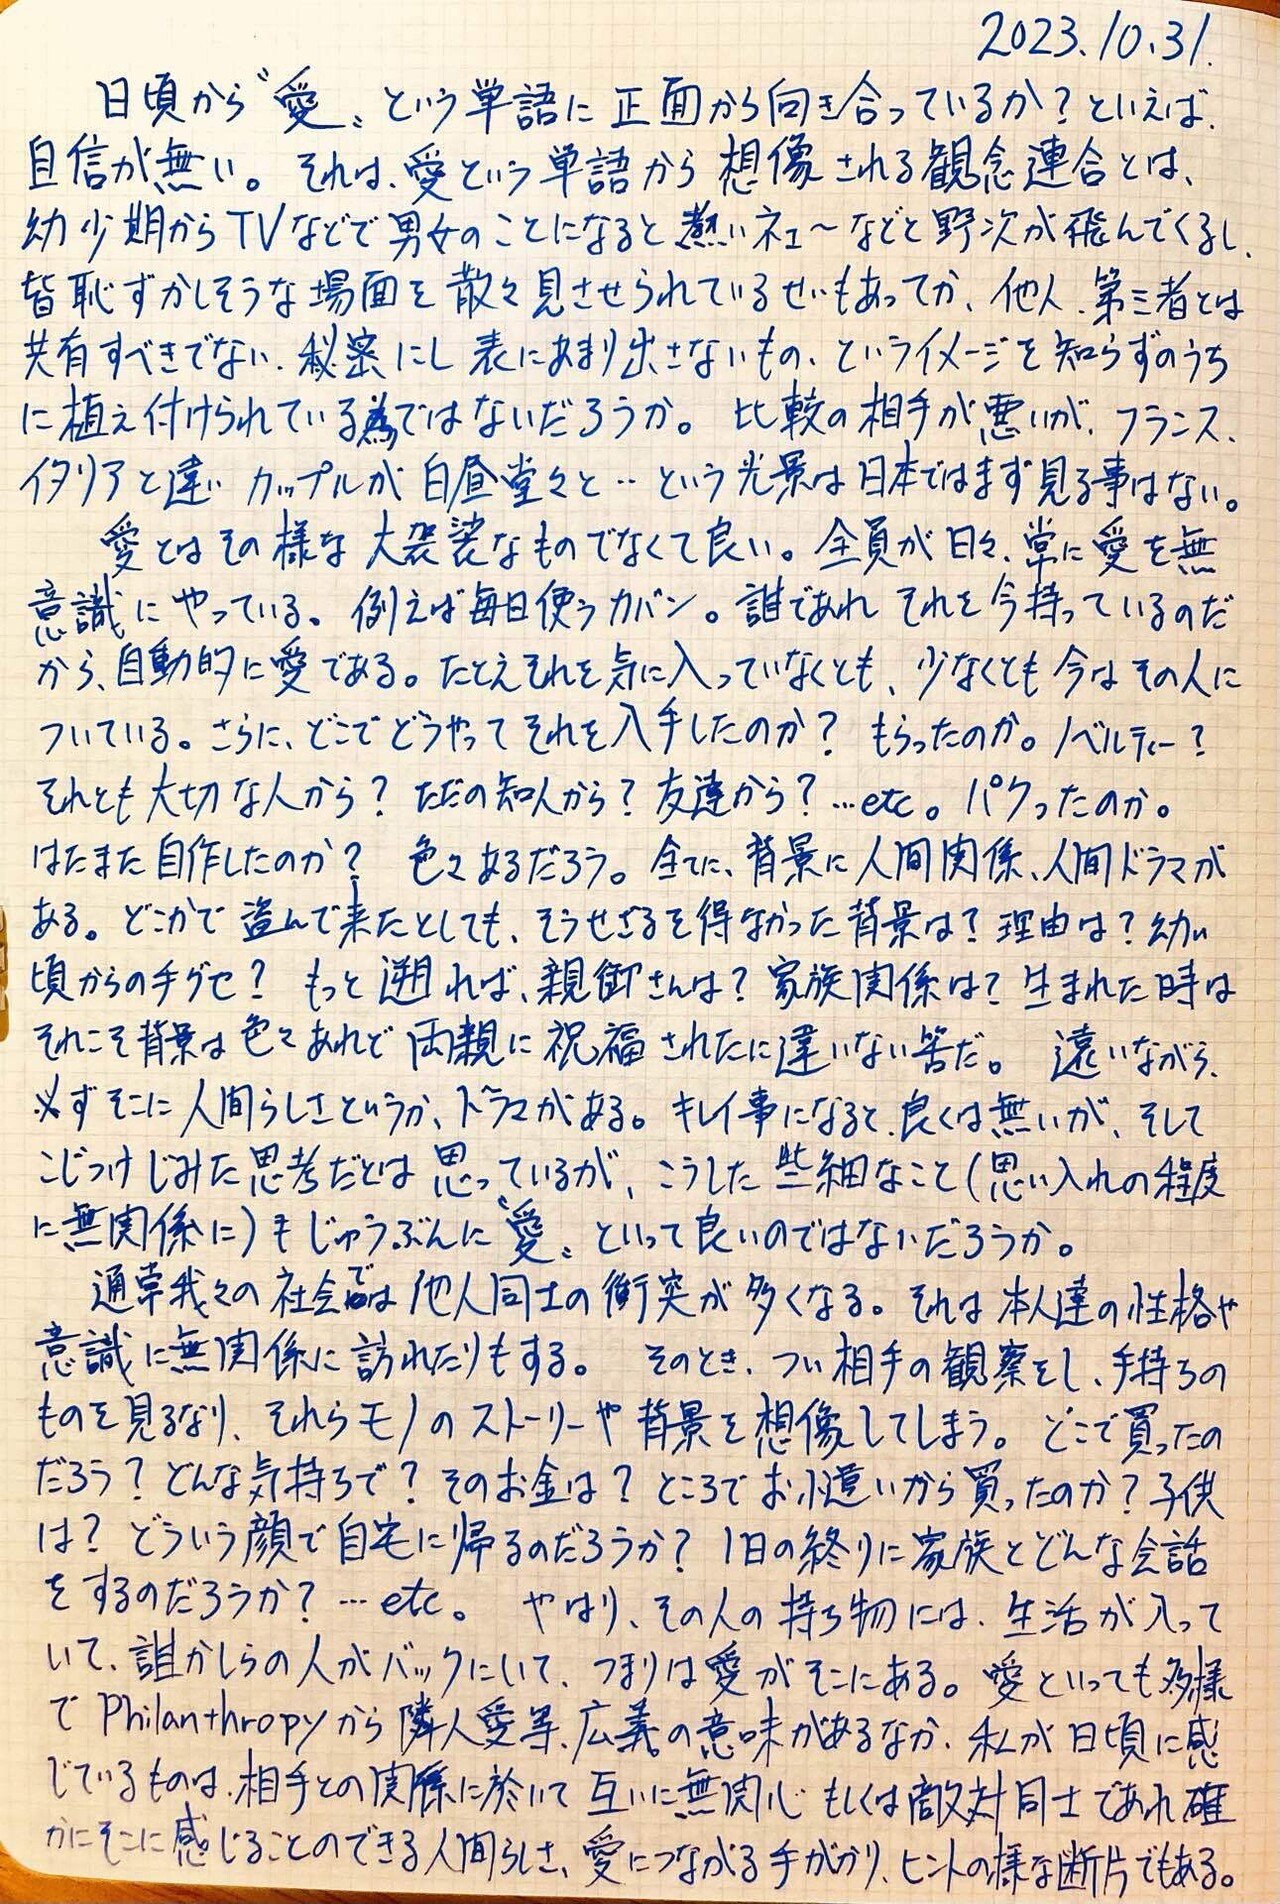 2023.10.31.
日頃から〝愛〟という単語に正面から向き合っているか？といえば、
自信が無い。それは、愛という単語から想像される観念連合とは、
幼少期からTVなどで男女のことになると熱いネェ〜などと野次が飛んでくるし、
皆恥ずかしそうな場面を散々見させられているせいもあってか、他人、第三者とは
共有すべきでない、秘密にし表にあまり出さないもの、というイメージを知らずのうち
に植え付けられている為ではないだろうか。比較の相手が悪いが、フランス、
イタリアと違いカップルが白昼堂々と‥という光景は日本ではまず見る事はない。
愛とはその様な大袈裟なものでなくて良い。全員が日々、常に愛を無
意識にやっている。例えば毎日使うカバン。誰であれそれを今持っているのだ
から、自動的に愛である。たとえそれを気に入っていなくとも、少なくとも今はその人に
ついている。さらに、どこでどうやってそれを入手したのか？もらったのか。ノベルティー？
それとも大切な人から？ただの知人から？友達から？…etc。パクったのか。
はたまた自作したのか？色々あるだろう。全てに、背景に人間関係、人間ドラマが
ある。どこかで盗んで来たとしても、そうせざるを得なかった背景は？理由は？幼い
頃からの手グセ？もっと遡れば、親御さんは？家族関係は？生まれた時は
それこそ背景は色々あれど両親に祝福されたに違いない筈だ。遠いながら、
必ずそこに人間らしさというか、ドラマがある。キレイ事になると良くは無いが、そして
こじつけじみた思考だとは思っているが、こうした些細なこと(思い入れの程度
に無関係に)もじゅうぶんに〝愛〟といって良いのではないだろうか。
通常我々の社会では他人同士の衝突が多くなる。それは本人達の性格や
意識に無関係に訪れたりもする。そのとき、つい相手の観察をし、手持ちの
ものを見るなり、それらモノのストーリーや背景を想像してしまう。どこで買ったの
だろう？どんな気持ちで？そのお金は？ところでお小遣いから買ったのか？子供
は？どういう顔で自宅に帰るのだろうか？1日の終りに家族とどんな会話
をするのだろうか？…etc。やはり、その人の持ち物には、生活が入って
いて、誰かしらの人がバックにいて、つまりは愛がそこにある。愛といっても多様
でPhilanthropyから隣人愛等、広義の意味があるなか、私が日頃に感
じているものは、相手との関係に於いて互いに無関心もしくは敵対同士であれ確
かにそこに感じることのできる人間らしさ、愛につながる手がかり、ヒントの様な断片でもある。